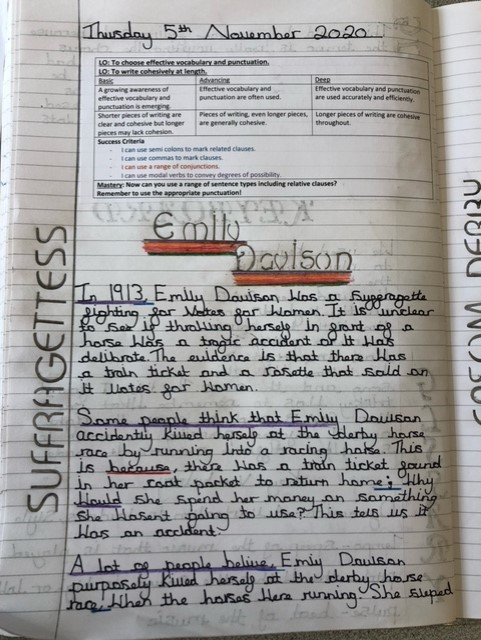 Thursday 5th November 2020
LO: To choose effective vocabulary and punctuation.
LO: To write cohesively at length.
Basic
Advancing
Deep
A growing awareness of effective vocabulary and punctuation is emerging.
Effective vocabulary and punctuation are often used.
Effective vocabulary and punctuation are used accurately and efficiently.
Shorter pieces of writing are clear and cohesive but longer pieces may lack cohesion.
Pieces of writing, even longer pieces, are generally cohesive.
Longer pieces of writing are cohesive throughout.
Success Criteria
- I can use semi colons to mark related clauses.
- I can use commas to mark clauses.
- I can use a range of conjunctions.
- I can use modal verbs to convey degrees of possibility.
Mastery: Now can you use a range of sentence types including relative clauses?
Remember to use the appropriate punctuation!
SUFFRAGETTESS
Emily
Davison
In 1913, Emily Davison was a suggragette
fighting for Votes for Women. It is unclear
to see if throwing herself in front of a
horse was a tragic accident or it was
delibrate. The evidence is that there was
a train ticket and a rosette that said on
it Votes for Women.
Some people think that Emily Davison
accidently killed herself at the derby horse
race by running into a racing horse. This
is because, there was a train ticket found
in her coat pocket to return home; Why
Would she spend her money on something
she wasent going to use? This tels us it
was an accident.
A lot of people belive, Emily Davison
purposely killed herself at the derby horse
race. When the horses were running she
DERBY